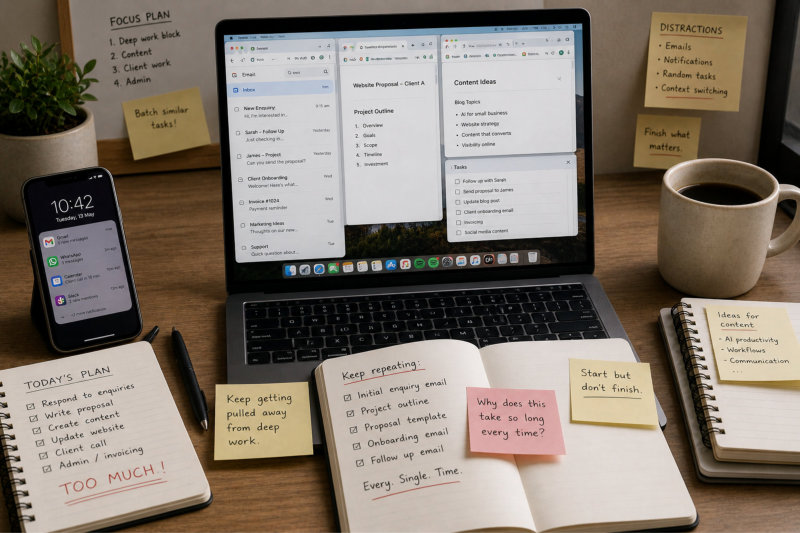 FOCUS PLAN
1. Deep work block
2. Content
3. Client work
4. Admin
Batch similar
tasks!
DISTRACTIONS
• Emails
• Notifications
• Random tasks
• Context switching
Finish what
matters.
Email
Inbox
New Enquiry
9:15 am
Hi, I'm interested in...
Sarah – Follow Up
Yesterday
Just checking in...
James – Project
Yesterday
Can you send the proposal?
Client Onboarding
Wed
Welcome! Here's what...
Invoice #1024
Wed
Payment reminder
Marketing Ideas
Tue
Thoughts on our new...
Support
Quick question about...
Website Proposal – Client A
Project Outline
1. Overview
2. Goals
3. Scope
4. Timeline
5. Investment
Content Ideas
Blog Topics
• AI for small business
• Website strategy
• Content that converts
• Visibility online
Tasks
Follow up with Sarah
Send proposal to James
Update blog post
Client onboarding email
Invoicing
Social media content
10:42
Tuesday, 13 May
Gmail
WhatsApp
Calendar
Slack
TODAY'S PLAN
Respond to enquiries
Write proposal
Create content
Update website
Client call
Admin / invoicing
TOO MUCH!
Keep getting
pulled away
from deep
work.
Keep repeating:
Initial enquiry email
Project outline
Proposal template
Onboarding email
Follow up email
Every. Single. Time.
Why does this
take so long
every time?
Start but
don't finish.
Ideas for
content
- AI productivity
- Workflows
- Communication
...